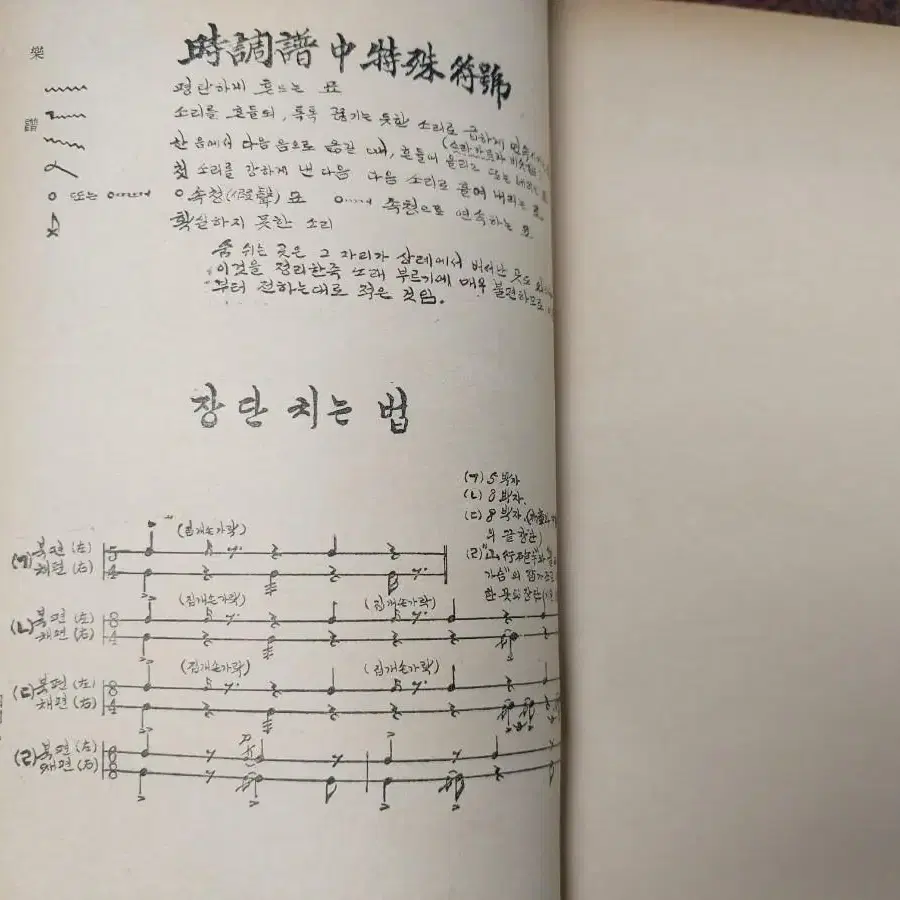 樂
譜
時調譜中特殊符號
평탄하게 흔드는 표
소리를 흔들되, 톡톡 튕기는 듯한 소리로 급하게
한 음에서 다음 음으로 옮길 때, 흔들어 올리고 또는
첫 소리를 강하게 낸 다음 다음 소리로 끌어 내리는 표
또는 속청(假聲) 표 속청으로 연속하는 표
확실하지 못한 소리
숨 쉬는 곳은 그 자리가 상례에서 벗어난 곳도
이것을 정리한즉 노래 부르기에 매우 불편하므로
부터 전하는대로 적은 것임.
장단 치는 법
(ㄱ) 5 박자
(ㄴ) 8 박자.
(ㄷ) 8 박자.
의 끝 장단)
(ㄹ)
(집게손가락)
(ㄱ) 북편 (左) 5
채편 (右) 4
(집게손가락) (집게손가락)
(ㄴ) 북편 (左) 8
채편 (右) 4
(집게손가락) (집게손가락)
(ㄷ) 북편 (左) 8
채편 (右) 4
(ㄹ) 북편 (左) 6
채편 (右) 8